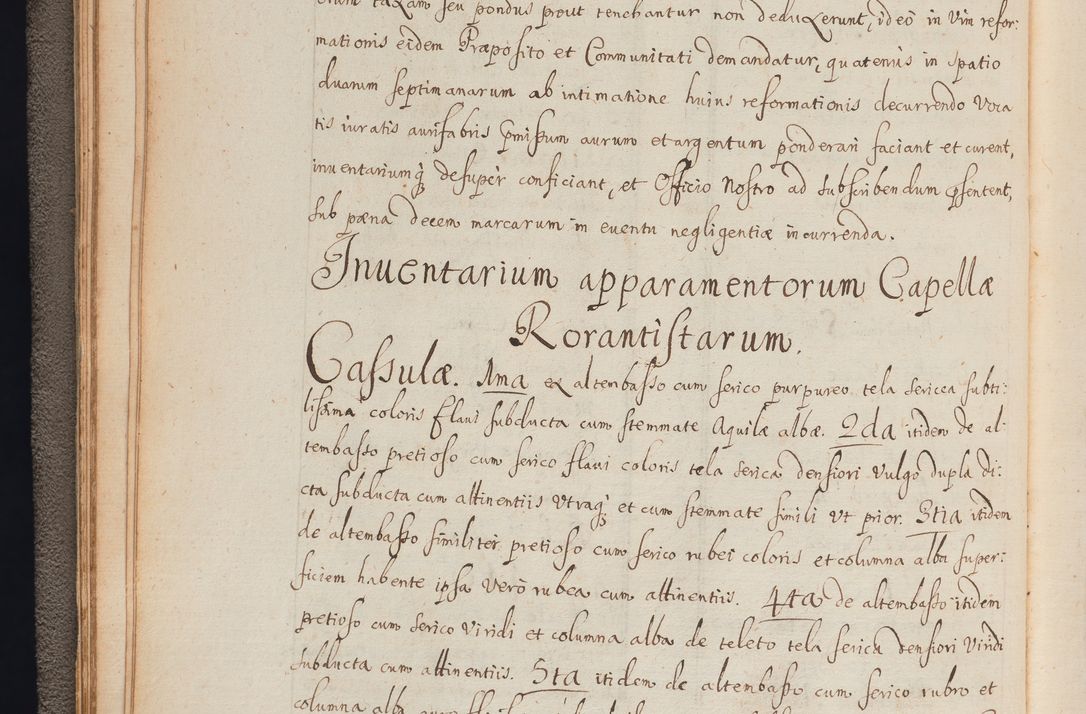 taxam seu pondus prout tenebantur non deduxerunt, ideo in vim refor:
mationis eidem Præposito et Communitati demandatur, quatenus in spatio
duarum septimanarum ab intimatione huius reformationis decurrendo voca
tis iuratis aurifabris p̃missum aurum et argentum ponderari faciant et curent,
inventariumq̃ desuper conficiant, et Officio Nostro ad subscribendum p̃sentent,
sub pœna decem marcarum in eventu negligentiæ incurrenda.
Inuentarium apparamentorum Capellæ
Rorantistarum.
Cassulæ. 1ma ex altembasso cum serico purpureo tela sericea subti:
lissima coloris flavi subducta cum stemmate Aquilæ albæ. 2da itidem de al:
tembasso pretioso cum serico flaui coloris tela serica densiori vulgo dupla di:
cta subducta cum attinentiis vtraq̃ et cum stemmate simili vt prior. 3tia itidem
de altembasso similiter pretioso cum serico rubei coloris et columna alba super:
ficiem habente ipsa verò rubea cum attinentiis. 4ta de altembasso itidem
pretioso cum serico viridi et columna alba de teleto tela serica densiori viridi
subducta cum attinentiis. 5ta itidem de altembasso cum serico rubro et
columna alba